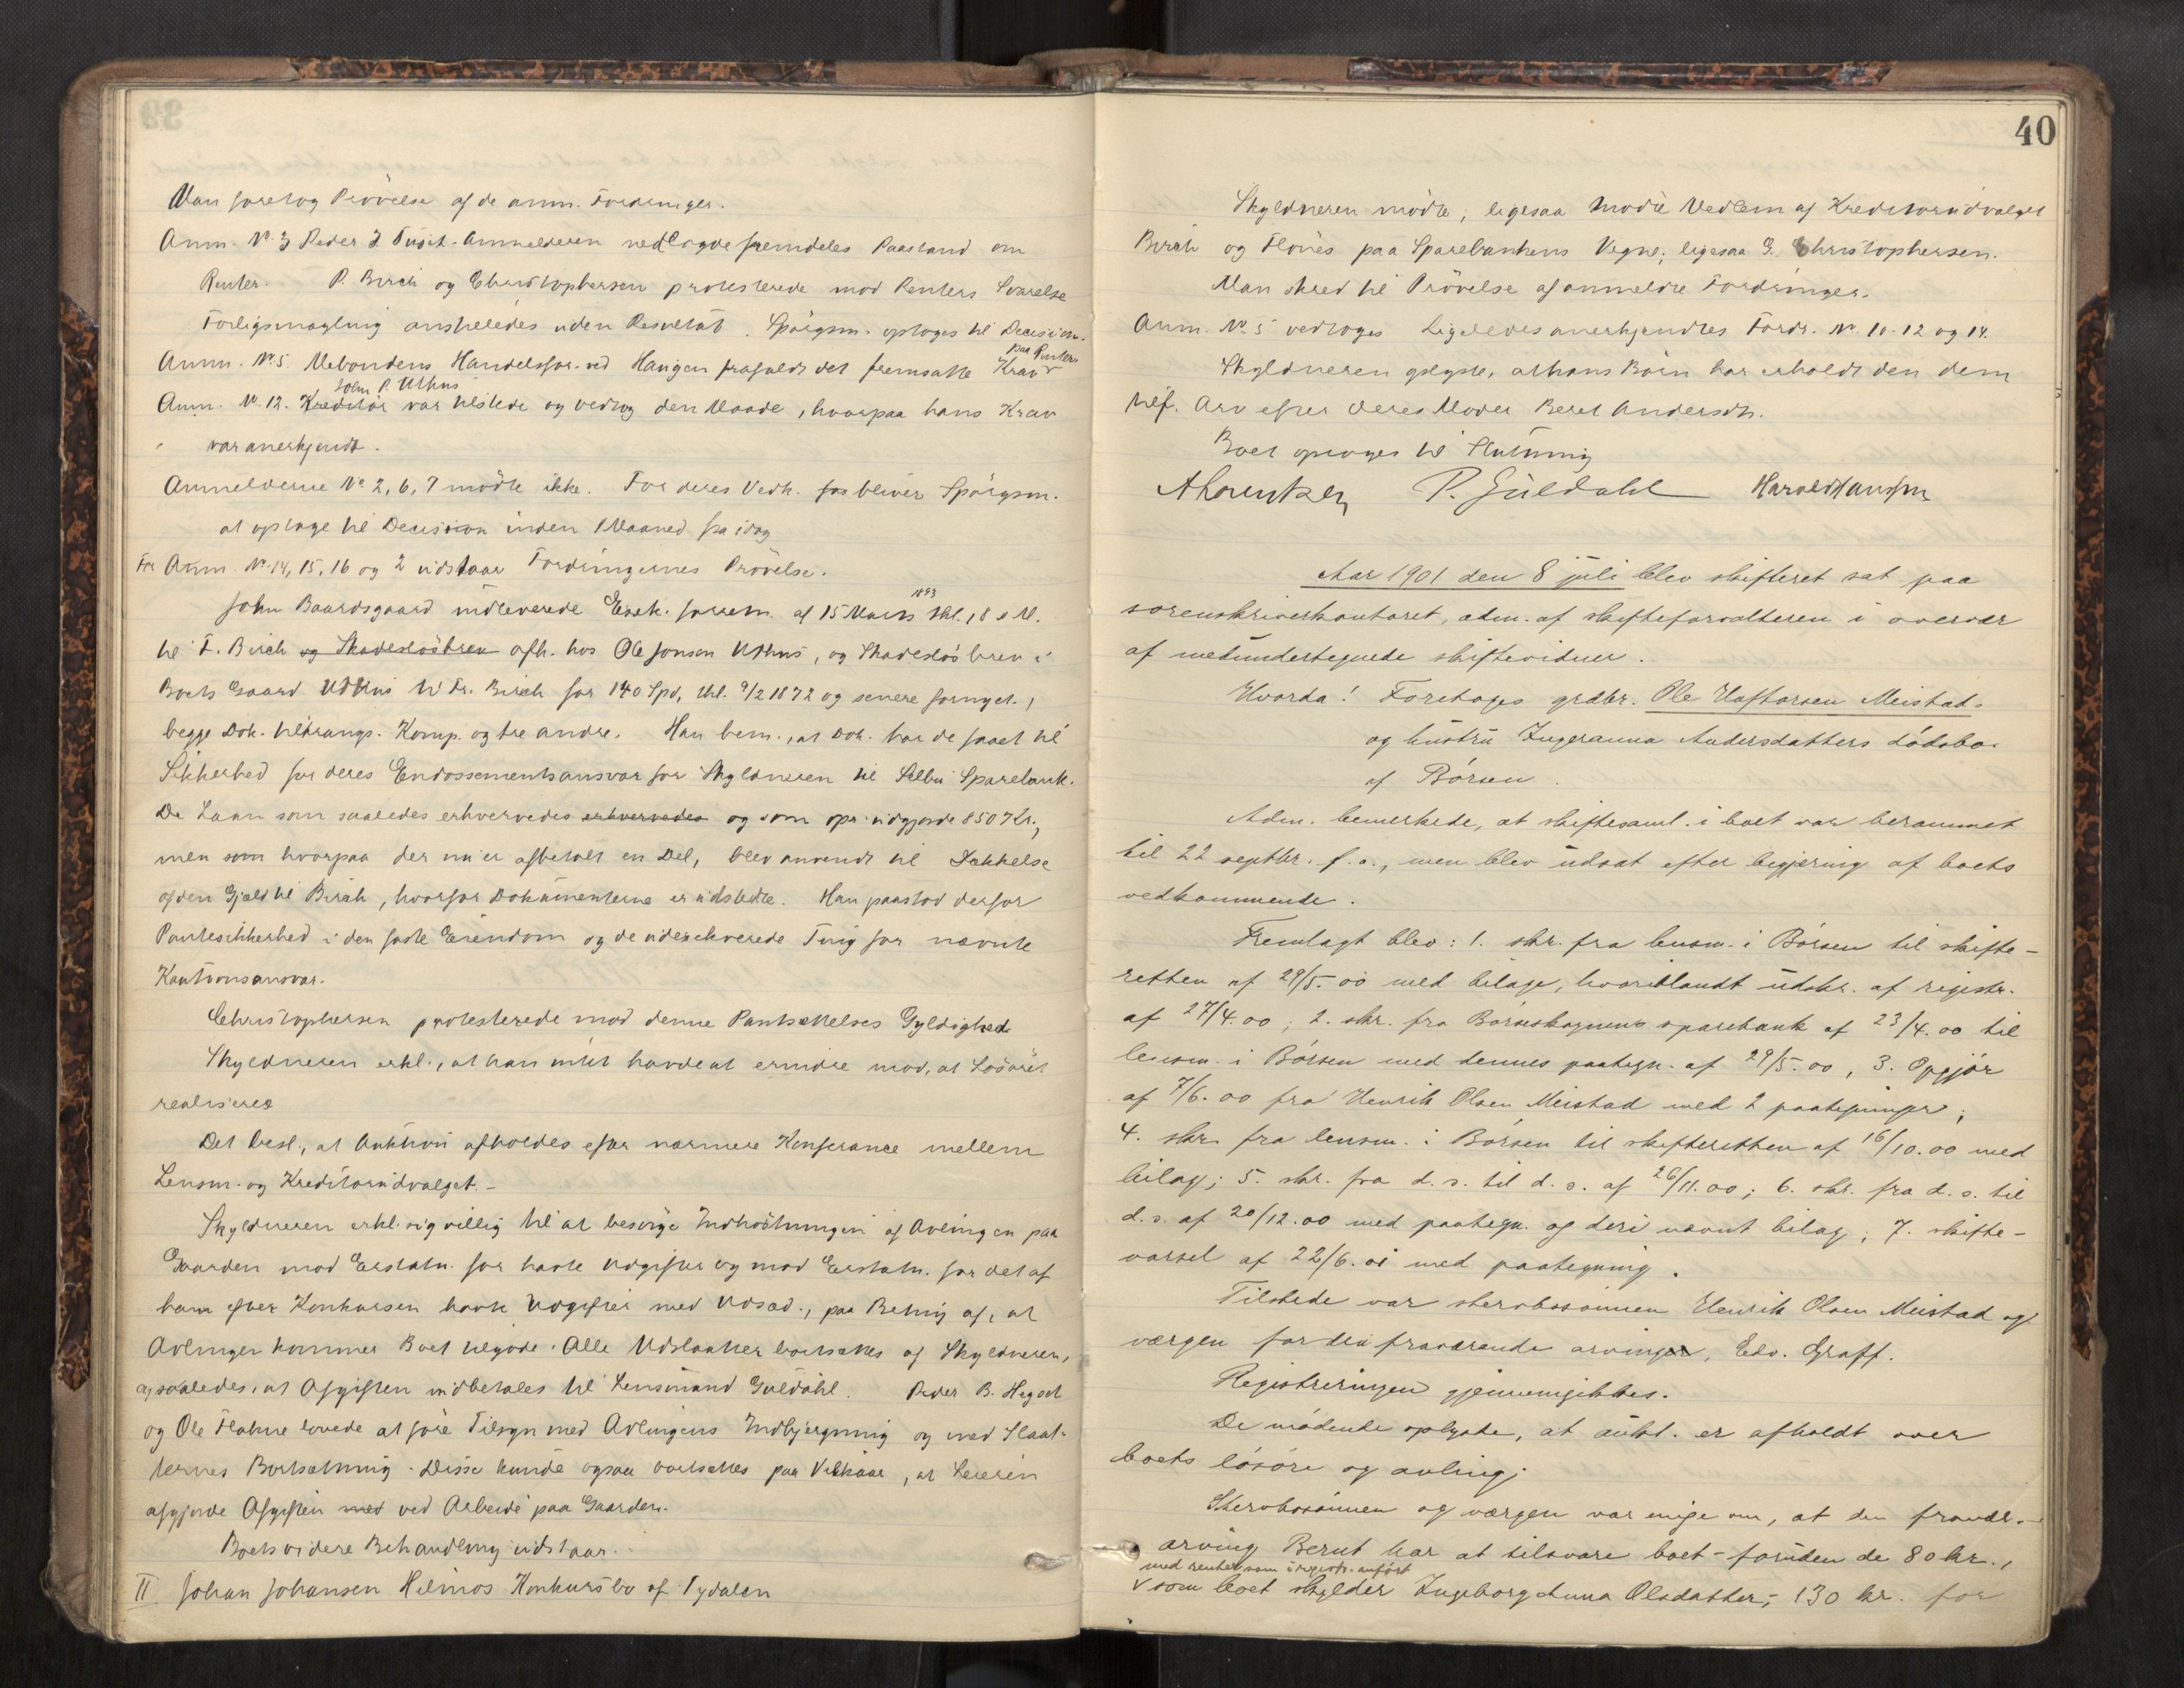 Man foretog Prövelse af de anm. Fordringer.
Anm. No. 3 Peder J. Anmelderen nedlagde fremdeles Paastand om
Renter. P. Birch og Christophersen protesterede mod Renters Svarelse
Forligsmægling anstilledes uden Resultat. Spörgsm. optoges til Decision.
Anm. No. 5. Mebondens Handelsfor. ved Haugen frafaldt det fremsatte Krav
paa Renter
John P. Uthus
Anm. No. 12. Kreditor var tilstede og vedtog den Maade, hvorpaa hans Krav
var anerkjendt.
Anmelderne No 2, 6, 7 mödte ikke. For deres Vedk. bliver Spörgsm.
at optage til Decision inden 1 Maaned fra idag
For Anm. No. 14, 15, 16 og 2 udstaar Fordringernes Prövelse.
1893
John Baardsgaard indleverede Exek. forretn. af 15 Marts thl. 18 s. M.
til F. Birch og Skadeslösbrev afh. hos Ole Jonsen Uthus, og Skadeslösbrev i
Boets Gaard Uthus til Fr. Birch for 140 Spd, thl. 9/2 1872 og senere fornyet,
begge Dok. tiltransp. Komp. og tre andre. Han bem., at Dok. har de faaet til
Sikkerhed for deres Endossementsansvar for Skyldneren til Selbu Sparebank.
De Laan som saaledes erhvervedes erhvervedes og som opr. udgjorde 850 Kr.,
men som hvorpaa der nu er afbetalt en Del, blev anvendt til Dækkelse
af den Gjæld til Birch, hvorfor Dokumenterne er udstedte. Han paastod derfor
Pantesikkerhed i den faste Eiendom og de udexekverede Ting for nævnte
Kautionsansvar.
Christophersen protesterede mod denne Pantsættelses Gyldighed
Skyldneren erkl., at han intet havde at erindre mod, at Lösöret
realiseres
Det besl., at Auktion afholdes efter nærmere Konferance mellem
Lensm. og Kreditorudvalget. -
Skyldneren erkl. sig villig til at besörge Indhöstningen af Avlingen paa
Gaarden mod Erstatn. for havte Udgifter og mod Erstatn. for det af
ham efter Konkursen havte Udgifter med Udsæd., paa Beting. af, at
Avlingen kommer Boet tilgode. Alle Udslaatter bortsættes af Skyldneren,
og saaledes, at Afgiften indbetales til Lensmand Guldahl. Peder B. Hegset
og Ole Flakne lovede at före Tilsyn med Avlingens Indbjergning og med Slaat-
ternes Bortsætning. Disse kunde ogsaa bortsættes paa Vilkaar, at Leieren
afgjorde Afgiften med ved Arbeide paa Gaarden.
Boets videre Behandling udstaar.
II Johan Johansen Hilmos Konkursbo af Tydalen
40
Skyldneren mödte; ligesaa mödte Medlem af Kreditorudvalget
Birch og Flönes paa Sparebankens Vegne; ligesaa G. Christophersen.
Man skred til Prövelse af anmeldte Fordringer.
Anm. No. 5 vedtoges Ligeledes anerkjendtes Fordr. No. 10-12 og 14.
Skyldneren oplyste, at hans Börn har erholdt den dem
tilf. Arv efter deres Moder Beret Andersdtr.
Boet optoges til Slutning
A Lorentzen P. Guldahl Harald Hanssen
Aar 1901 den 8 juli blev skifteret sat paa
sorenskriverkontoret, adm. af skifteforvalteren i overvær
af medundertegnede skiftevidner.
Hvorda! Foretoges grdbr. Ole Haftorsen Meistads
og hustru Ingeranna Andersdatters dödsbo
af Börsen.
Adm. bemerkede, at skiftesaml. i boet var berammet
til 22 septbr. f. a., men blev udsat efter begjæring af boets
vedkommende.
Fremlagt blev: 1. skr. fra lensm. i Börsen til skifte-
retten af 29/5. 00 med bilage, hvoriblandt udskr. af registr.
af 27/4. 00; 2. skr. fra Borseskognens sparebank af 23/4. 00 til
lensm. i Börsen med dennes paategn. af 29/5. 00, 3. Opgjör
af 7/6. 00 fra Henrik Olsen Meistad med 2 paategninger;
4. skr. fra lensm. i Börsen til skifteretten af 16/10. 00 med
bilag; 5. skr. fra d. s. til d. s. af 26/11. 00; 6. skr. fra d. s. til
d. s. af 20/12. 00 med paategn. og deri nævnt bilag; 7. skifte-
varsel af 22/6. 01 med paategning.
Tilstede var sterbosönnen Henrik Olsen Meistad og
værgen for den fraværende arvinger, Edv. Graff.
Registreringen gjennemgikkes.
De mödende oplyste, at aukt. er afholdt over
boets lösöre og avling;
Sterbosönnen og værgen var enige om, at den fravær.
arving Bernt har at tilsvare boet - foruden de 80 kr.,
med renter som i registr. anfört
som boet skylder Ingeborganna Olsdatter; 130 kr. for